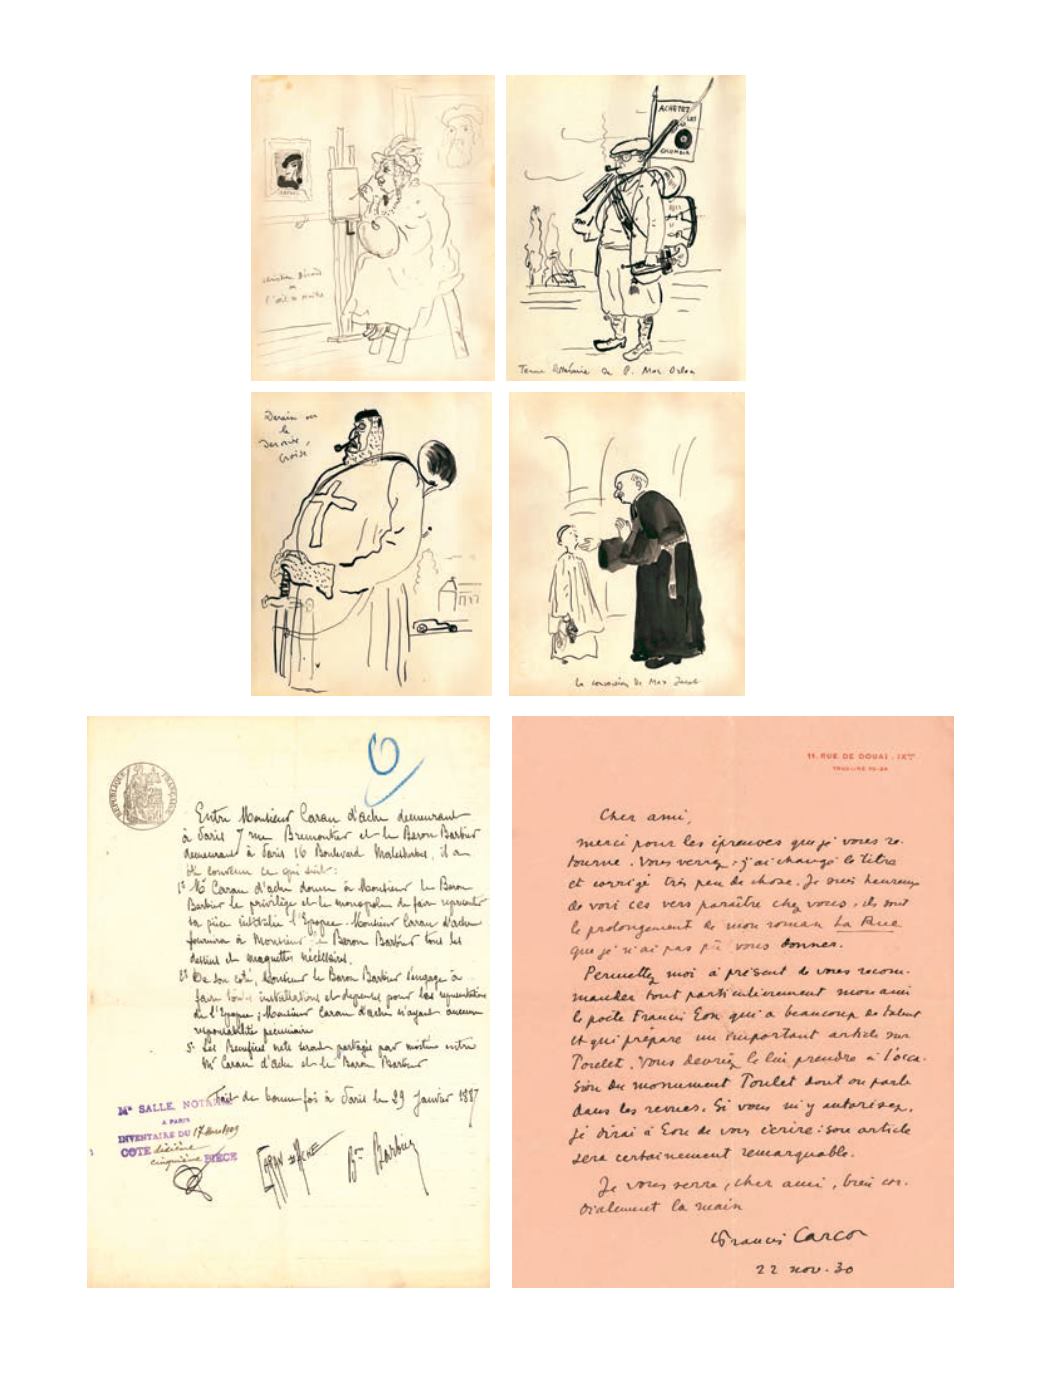 Christian Bérard
ou
l'œil de maître
ACHETEZ
LES
COLUMBIA
Tenue littéraire de P. Mac Orlan
Derain ou
le
Dernier
Croisé
la conversion de Max Jacob
RÉPUBLIQUE FRANÇAISE
6
Entre Monsieur Caran d'ache demeurant
à Paris 7 rue Bremontier et le Baron Barbier
demeurant à Paris 16 Boulevard Malesherbes, il a
été convenu ce qui suit :
1° Mr Caran d'ache donne à Monsieur le Baron
Barbier le privilège et le monopole de faire représenter
sa pièce intitulée l'Epopée. Monsieur Caran d'ache
fournira à Monsieur le Baron Barbier tous les
dessins et maquettes nécessaires.
2° De son coté, Monsieur le Baron Barbier s'engage à
faire toutes installations et dépenses pour les représentations
de l'Epopée ; Monsieur Caran d'ache n'ayant aucune
responsabilité pécuniaire
Les Bénéfices nets seront partagés par moitié entre
Mr Caran d'ache et le Baron Barbier
Fait de bonne foi à Paris le 29 Janvier 1887
Me SALLE, NOTAIRE
A PARIS
INVENTAIRE DU 17 Mars 1909
COTE dixième
cinquième PIÈCE
CARAN D'ACHE
Bon Barbier
11, RUE DE DOUAI . IXe
Cher ami,
merci pour les épreuves que je vous re-
tourne. Vous verrez : j'ai changé le titre
et corrigé très peu de chose. Je suis heureux
de voir ces vers paraître chez vous : ils sont
le prolongement de mon roman La Rue
que je n'ai pas pu vous donner.
Permettez moi à présent de vous recom-
mander tout particulièrement mon ami
le poète Francis Eon qui a beaucoup de talent
et qui prépare un important article sur
Toulet. Vous devriez le lui prendre à l'occa-
sion du monument Toulet dont on parle
dans les revues. Si vous m'y autorisez,
je dirai à Eon de vous écrire : son article
sera certainement remarquable.
Je vous serre, cher ami, bien cor-
dialement la main
Francis Carco
22 nov. 30